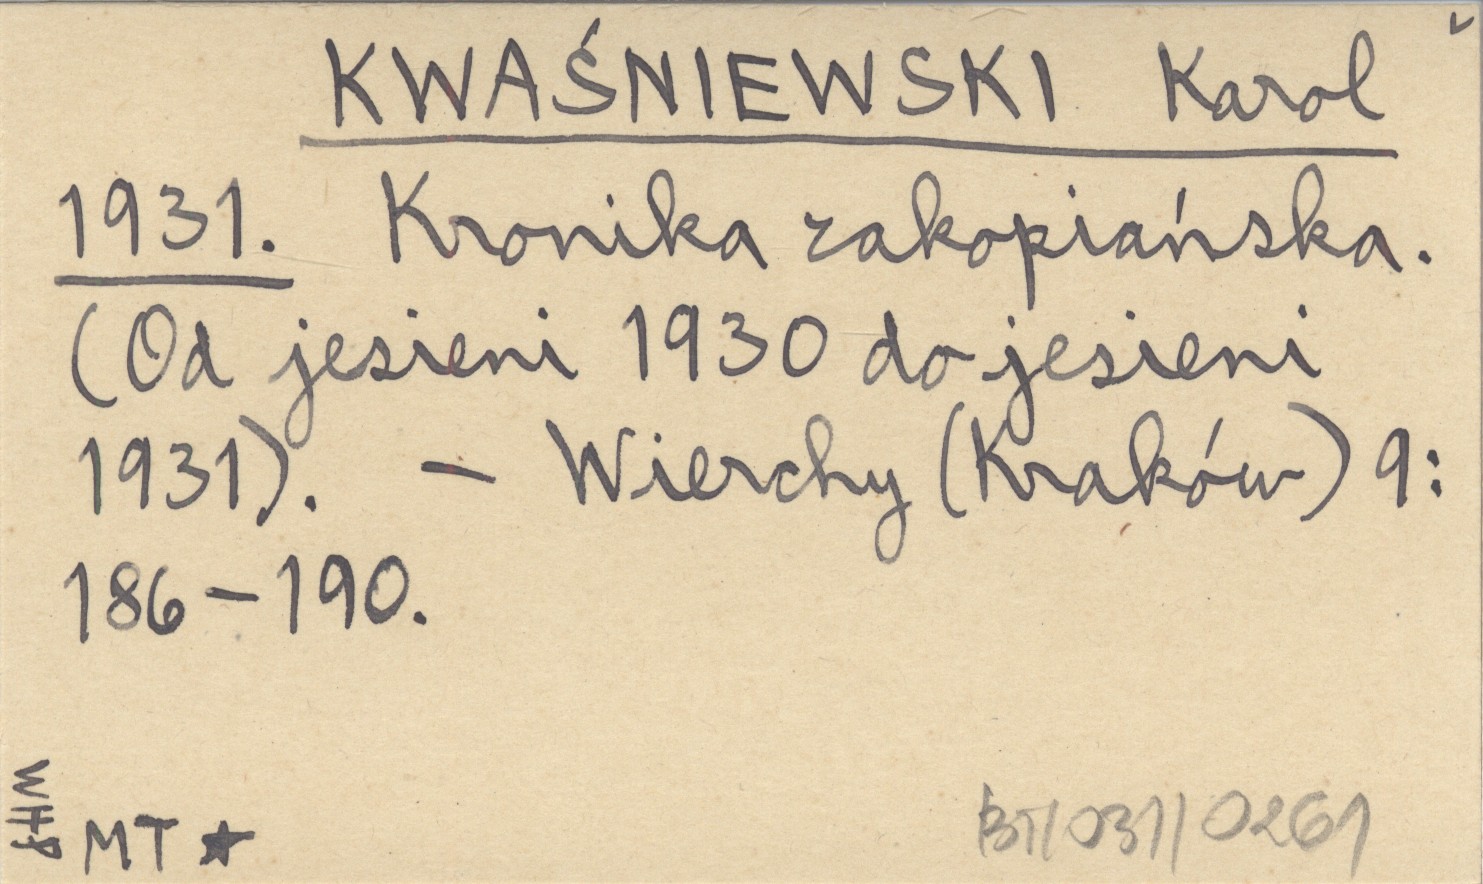 KWAŚNIEWSKI Karol
1931. Kronika zakopiańska.
(Od jesieni 1930 do jesieni
1931). – Wierchy (Kraków) 9:
186–190.
MT ★
BT/031/0261